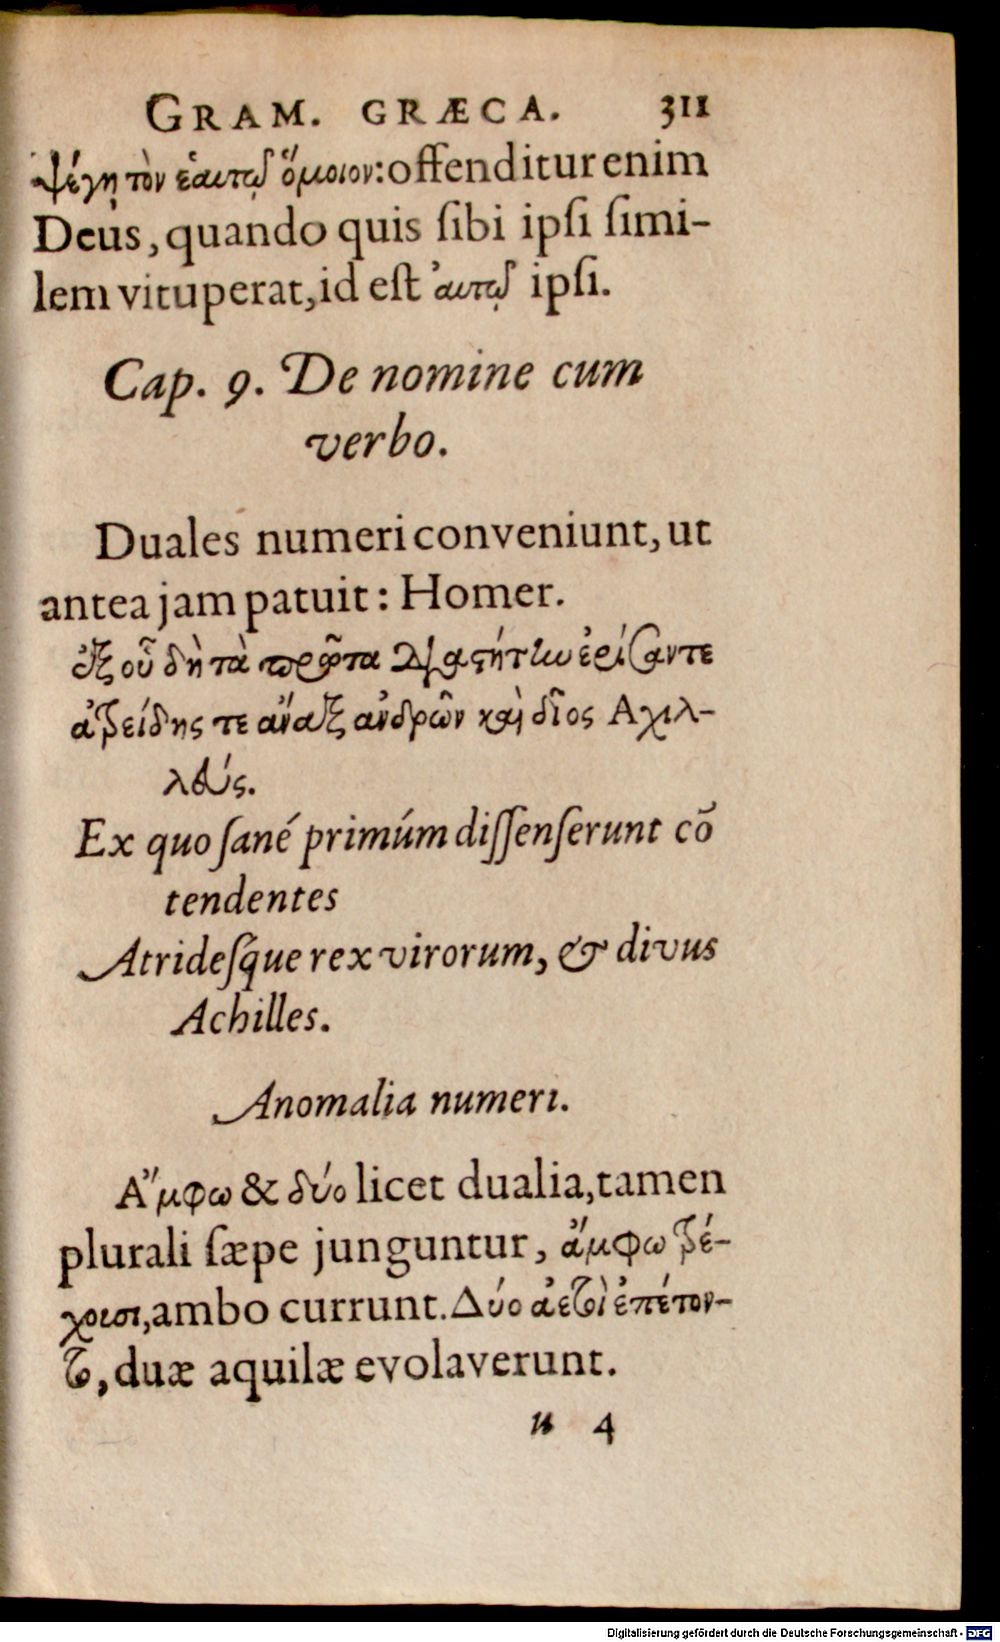 GRAM. GRÆCA. 311
ψέγῃ τὸν ἑαυτῷ ὅμοιον: offenditur enim
Deus, quando quis ſibi ipſi ſimi-
lem vituperat, id eſt ἀυτῷ ipſi.
Cap. 9. De nomine cum
verbo.
Duales numeri conveniunt, ut
antea jam patuit: Homer.
ἐξ οὗ δὴ τὰ πρῶτα διαστήτην ἐρίσαντε
ἀτρείδης τε ἄναξ ἀνδρῶν καὶ δῖος Αχιλ-
λεύς.
Ex quo ſané primúm diſſenſerunt cō
tendentes
Atrideſq́ue rex virorum, & divus
Achilles.
Anomalia numeri.
Α῎μφω & δύο licet dualia, tamen
plurali ſæpe junguntur, ἄμφω τρέ-
χουσι, ambo currunt. Δύο ἀετοὶ ἐπέτον-
το, duæ aquilæ evolaverunt.
u 4
Digitalisierung gefördert durch die Deutsche Forschungsgemeinschaft - DFG